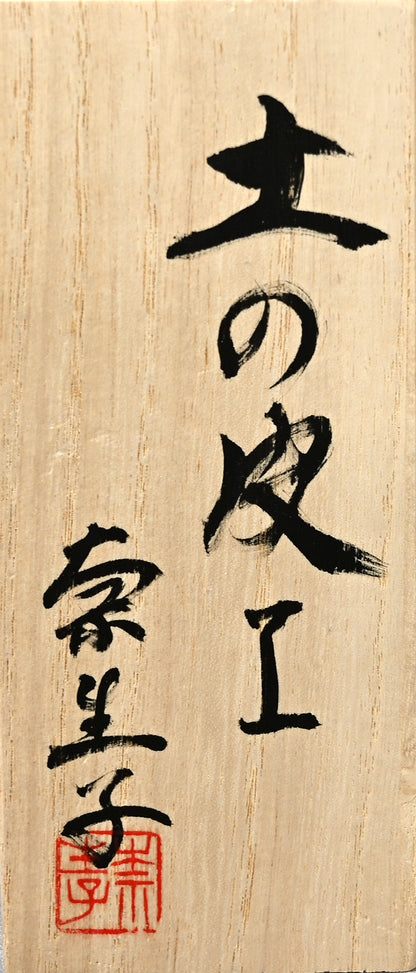 土の皮 I
奈生子